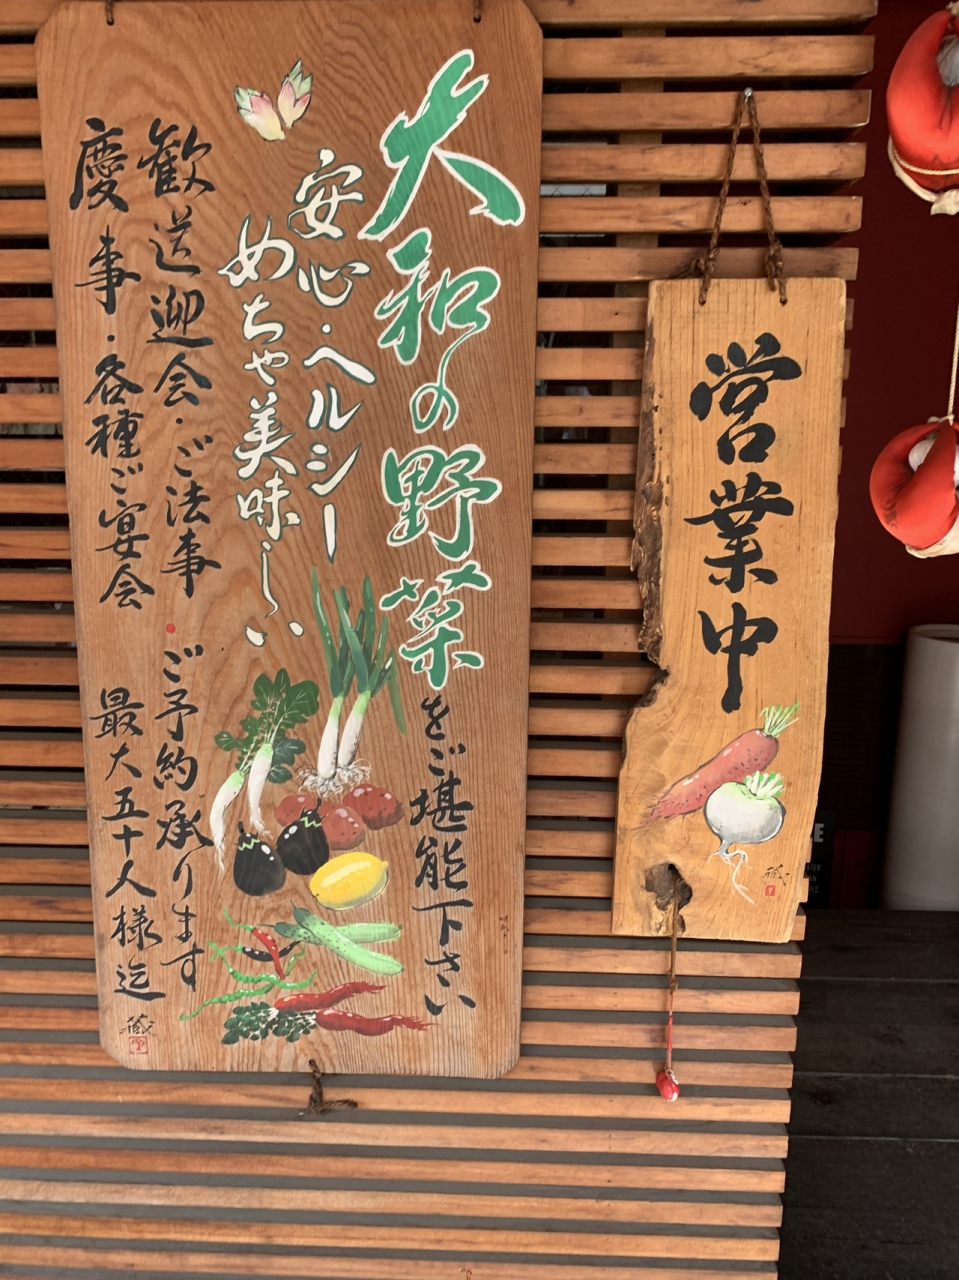 営業中
大和の野菜をご堪能下さい
安心・ヘルシー
めちゃ美味しい
歓送迎会・ご法事・ご予約承ります
慶事・各種ご宴会 最大五十人様迄
藏
藏